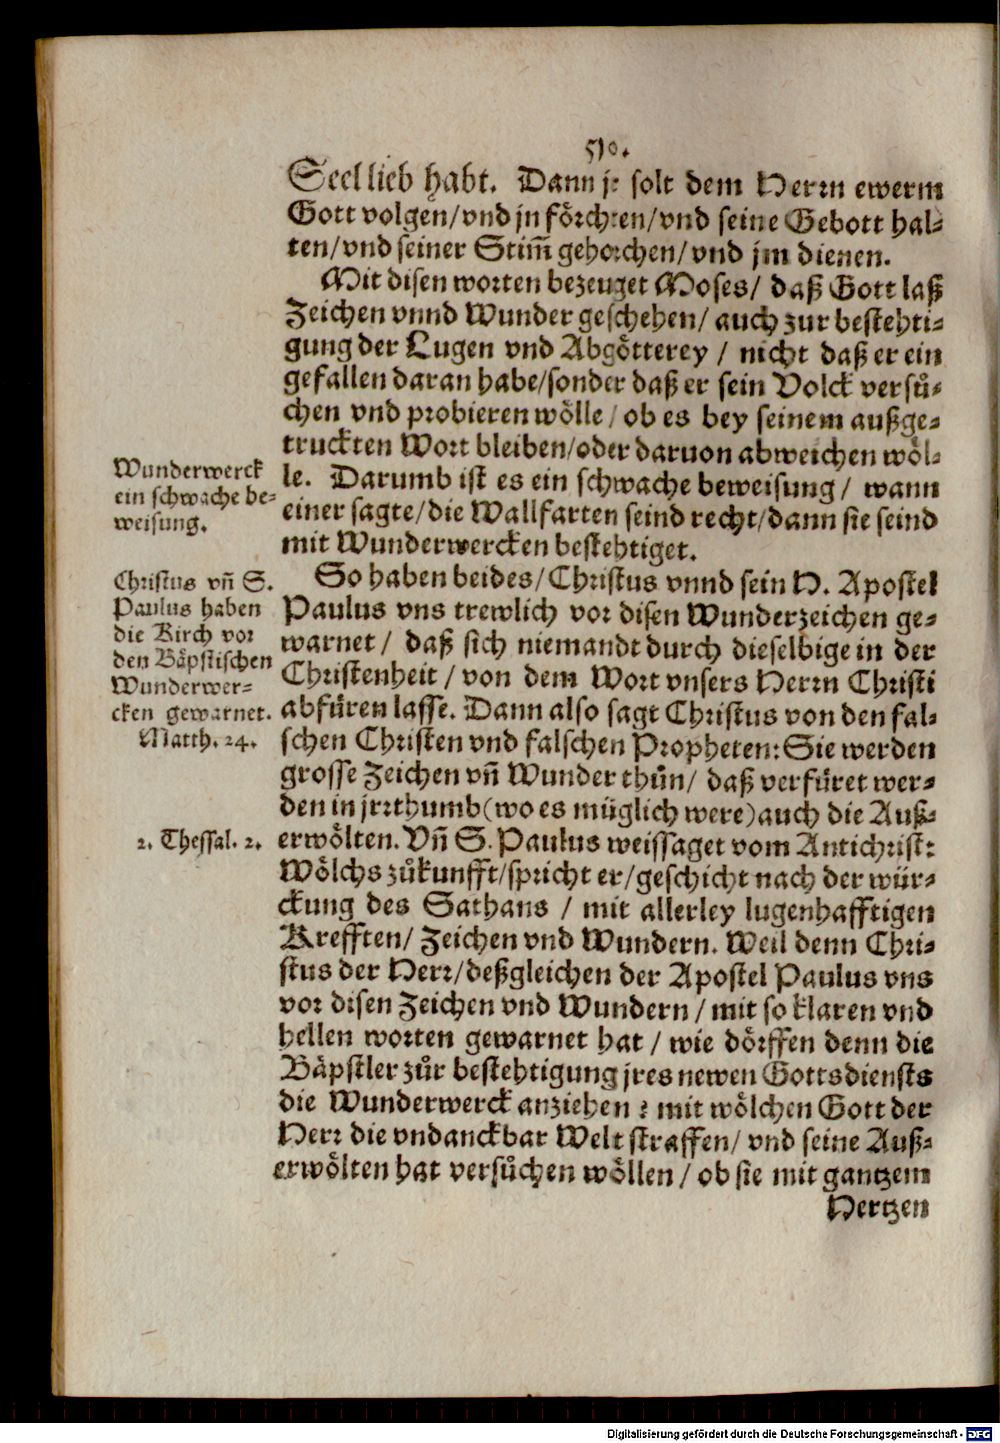 510.
Seel lieb habt. Dann jr solt dem Herrn ewerm
Gott volgen/vnd jn förchten/vnd seine Gebott hal-
ten/vnd seiner Stim̄ gehorchen/vnd jm dienen.
Mit disen worten bezeuget Moses/ daß Gott laß
Zeichen vnnd Wunder geschehen/ auch zur bestehti-
gung der Lugen vnd Abgötterey / nicht daß er ein
gefallen daran habe/sonder daß er sein Volck versů-
chen vnd probieren wölle/ ob es bey seinem außge-
truckten Wort bleiben/oder daruon abweichen wöl-
le. Darumb ist es ein schwache beweisung/ wann
einer sagte/die Wallfarten seind recht/dann sie seind
mit Wunderwercken bestehtiget.
Wunderwerck
ein schwache be-
weisung.
So haben beides/Christus vnnd sein H. Apostel
Paulus vns trewlich vor disen Wunderzeichen ge-
warnet/ daß sich niemandt durch dieselbige in der
Christenheit/ von dem Wort vnsers Herrn Christi
abfüren lasse. Dann also sagt Christus von den fal-
schen Christen vnd falschen Propheten: Sie werden
grosse Zeichen vn̄ Wunder thůn/ daß verfüret wer-
den in jrrthumb(wo es müglich were)auch die Auß-
erwölten. Vn̄ S. Paulus weissaget vom Antichrist:
Wölchs zůkunfft/spricht er/geschicht nach der wür-
ckung des Sathans / mit allerley lugenhafftigen
Krefften/ Zeichen vnd Wundern. Weil denn Chri-
stus der Herr/deßgleichen der Apostel Paulus vns
vor disen Zeichen vnd Wundern/ mit so klaren vnd
hellen worten gewarnet hat / wie dörffen denn die
Bäpstler zůr bestehtigung jres newen Gottsdiensts
die Wunderwerck anziehen? mit wölchen Gott der
Herr die vndanckbar Welt straffen/ vnd seine Auß-
erwölten hat versůchen wöllen/ ob sie mit gantzem
Hertzen
Christus vn̄ S.
Paulus haben
die Kirch vor
den Bäpstischen
Wunderwer-
cken gewarnet.
Matth. 24.
2. Thessal. 2.
Digitalisierung gefördert durch die Deutsche Forschungsgemeinschaft - DFG